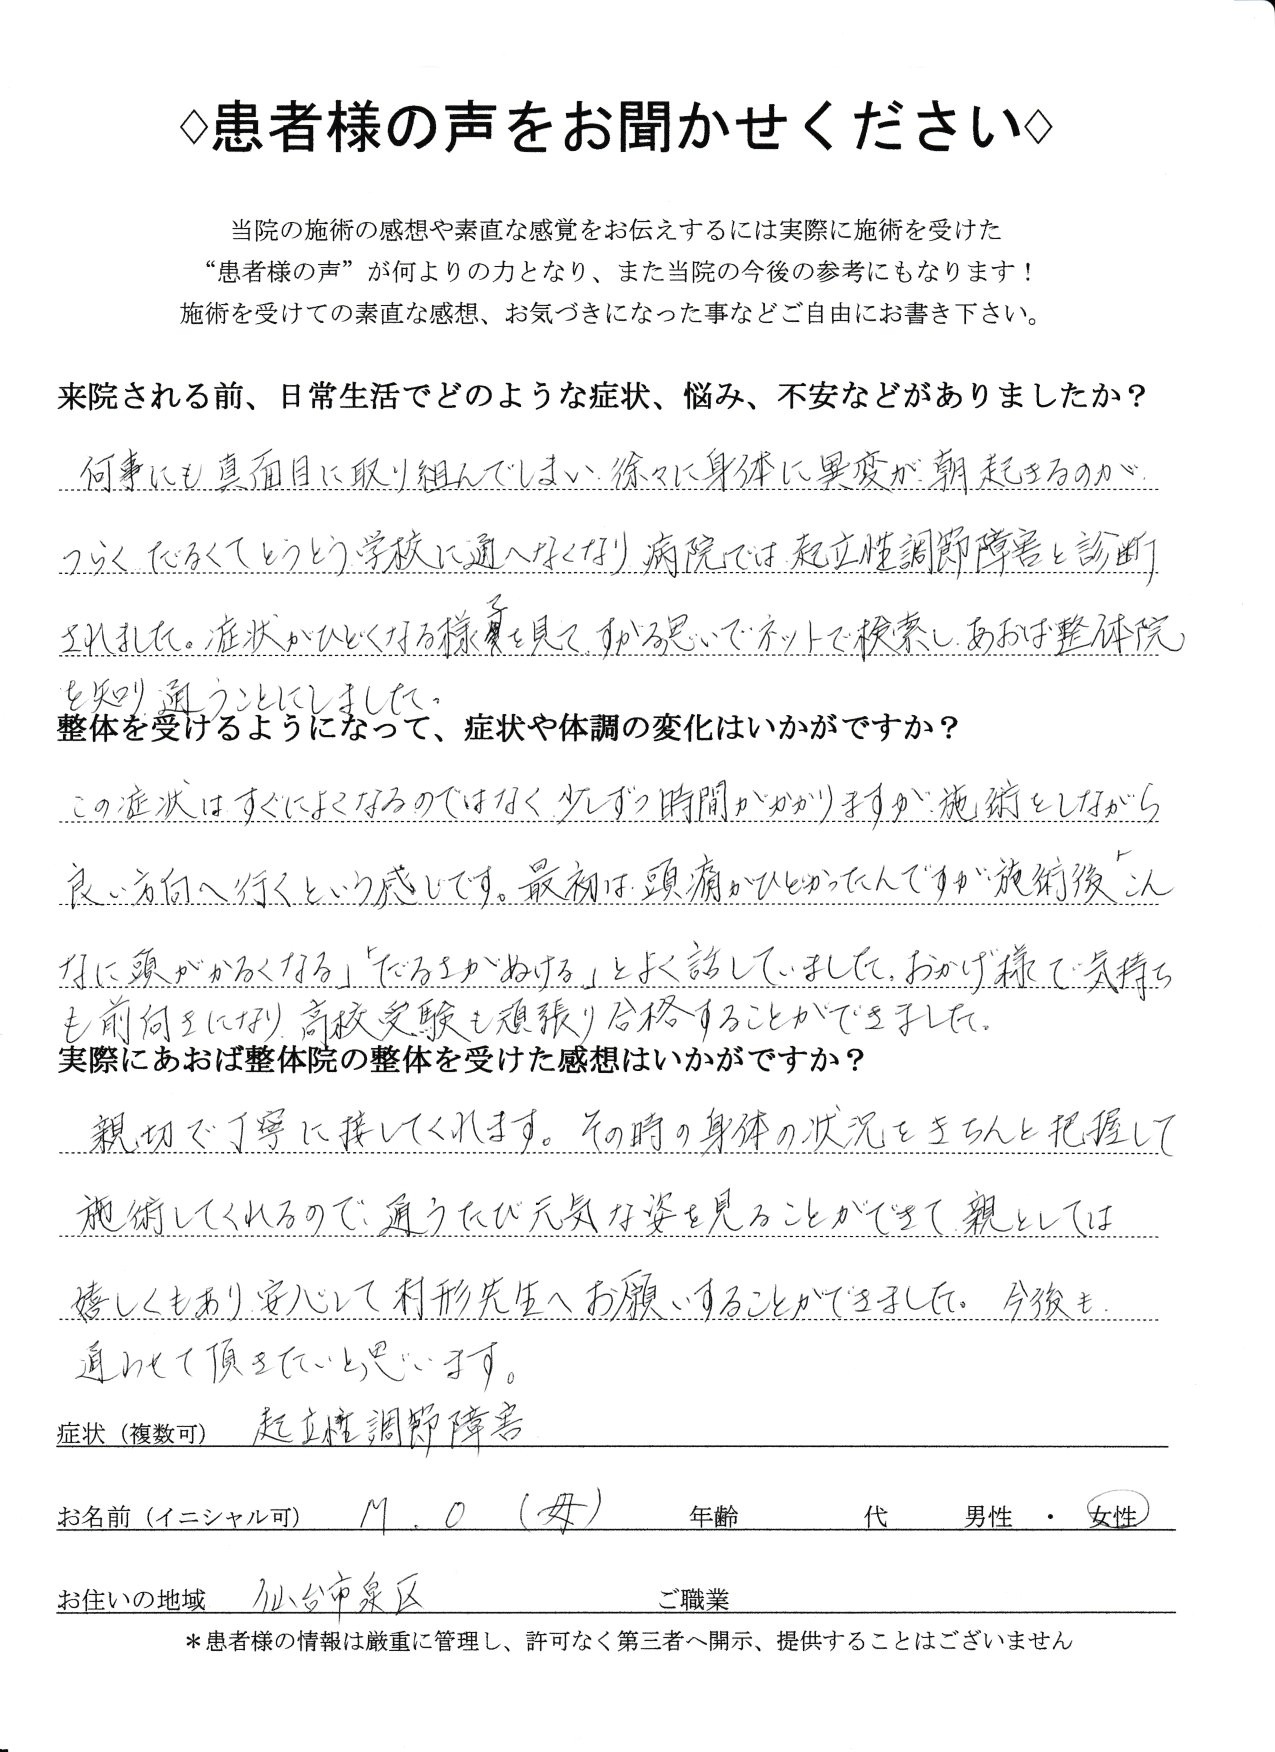 ◇患者様の声をお聞かせください◇
当院の施術の感想や素直な感覚をお伝えするには実際に施術を受けた
“患者様の声”が何よりの力となり、また当院の今後の参考にもなります！
施術を受けての素直な感想、お気づきになった事などご自由にお書き下さい。
来院される前、日常生活でどのような症状、悩み、不安などがありましたか？
何事にも真面目に取り組んでしまい、徐々に身体に異変が、朝起きるのが
つらく だるくてとうとう学校に通へなくなり 病院では起立性調節障害と診断
されました。症状がひどくなる様子を見て、すがる思いでネットで検索し、あおば整体院
を知り通うことにしました。
整体を受けるようになって、症状や体調の変化はいかがですか？
この症状はすぐによくなるのではなく少しずつ時間がかかりますが、施術をしながら
良い方向へ行くという感じです。最初は頭痛がひどかったんですが、施術後「こん
なに頭がかるくなる」「だるさがぬける」とよく話していました。おかげ様で気持ち
も前向きになり高校受験も頑張り合格することができました。
実際にあおば整体院の整体を受けた感想はいかがですか？
親切で丁寧に接してくれます。その時の身体の状況をきちんと把握して
施術してくれるので、通うたび元気な姿を見ることができて親としては
嬉しくもあり安心して村形先生へお願いすることができました。今後も
通わせて頂きたいと思います。
症状（複数可） 起立性調節障害
お名前（イニシャル可） M.O（母） 年齢 代 男性 ・ 女性
お住いの地域 仙台市泉区 ご職業
＊患者様の情報は厳重に管理し、許可なく第三者へ開示、提供することはございません